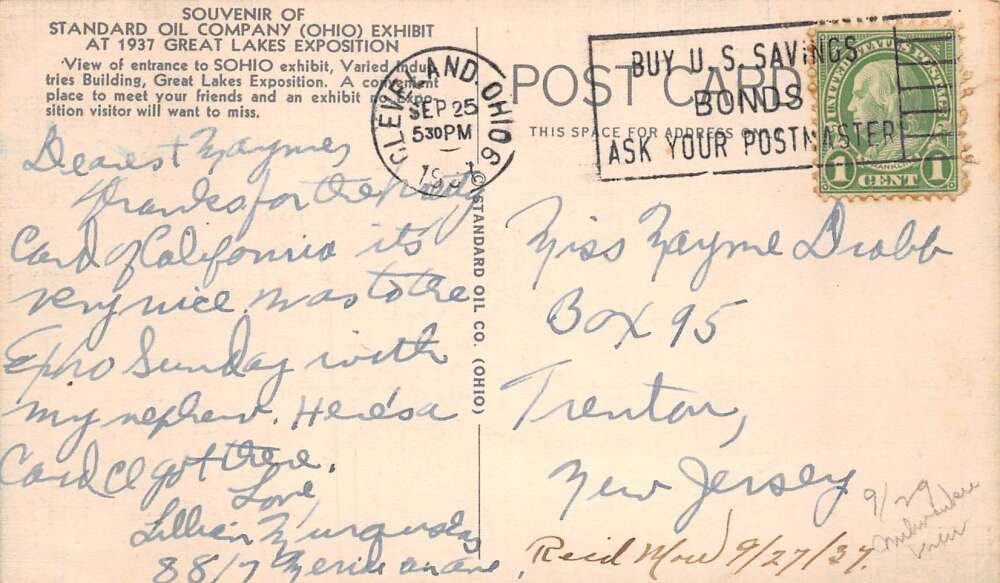 SOUVENIR OF
STANDARD OIL COMPANY (OHIO) EXHIBIT
AT 1937 GREAT LAKES EXPOSITION
View of entrance to SOHIO exhibit, Varied Indus-
tries Building, Great Lakes Exposition. A convenient
place to meet your friends and an exhibit no Expo-
sition visitor will want to miss.
Dearest Mayme,
Thanks for the pretty
Card of California its
very nice. Was to the
Expo Sunday with
my nephew. Here's a
Card I got there.
Love,
Lillian
8817 Meridian ave
CLEVELAND, OHIO
SEP 25
530PM
1937
6
© STANDARD OIL CO. (OHIO)
POST CARD
THIS SPACE FOR ADDRESS ONLY
BUY U.S. SAVINGS
BONDS
ASK YOUR POSTMASTER
UNITED STATES POSTAGE
FRANKLIN
1 CENT 1
Miss Mayme Drabb
Box 95
Trenton,
New Jersey
Recd Mon 9/27/37.
9/29